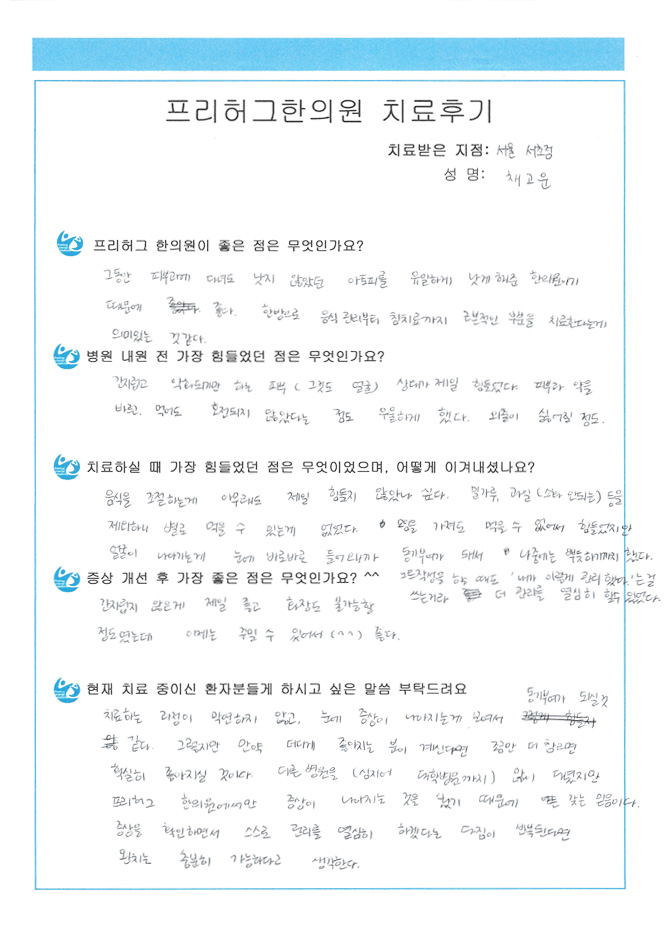 프리허그한의원 치료후기
치료받은 지점: 서울 서초점
성 명: 채고운
프리허그 한의원이 좋은 점은 무엇인가요?
그동안 피부과에 다녀도 낫지 않았던 아토피를 유일하게 낫게 해준 한의원이기
때문에 좋다. 한방으로 음식 관리부터 침치료까지 근본적인 부분을 치료한다는게
의미있는 것같다.
병원 내원 전 가장 힘들었던 점은 무엇인가요?
간지럽고 악화되기만 하는 피부 (그것도 얼굴) 상태가 제일 힘들었다. 피부과 약을
바르고, 먹어도 호전되지 않았다는 점도 우울하게 했다. 외출이 싫어질 정도.
치료하실 때 가장 힘들었던 점은 무엇이었으며, 어떻게 이겨내셨나요?
음식을 조절하는게 아무래도 제일 힘들지 않았나 싶다. 밀가루, 과일 (소화 안되는) 등을
제외하니 별로 먹을 수 있는게 없었다. 을 가져도 먹을 수 없어서 힘들었지만
얼굴이 나아지는게 눈에 바로바로 들어오니까 동기부여가 돼서 나중에는 뿌듯하기까지 했다.
증상 개선 후 가장 좋은 점은 무엇인가요? ^^
식단작성을 할 때도 '내가 이렇게 관리했다.'는걸
쓰는거라 더 관리를 열심히 할수 있었다.
간지럽지 않은게 제일 좋고 화장도 불가능할
정도였는데 이제는 꾸밀 수 있어서 (^^) 좋다.
현재 치료 중이신 환자분들게 하시고 싶은 말씀 부탁드려요
동기부여가 되실것
치료하는 과정이 막연하지 않고, 눈에 증상이 나아지는게 보여서
같다. 그렇지만 만약 더디게 좋아지는 분이 계신다면 조금만 더 참으면
확실히 좋아지실 것이다. 다른 병원을 (심지어 대학병원까지) 많이 다녔지만
프리허그 한의원에서만 증상이 나아지는 것을 봤기 때문에 갖는 믿음이다.
증상을 확인하면서 스스로 관리를 열심히 하겠다는 다짐이 반복된다면
완치는 충분히 가능하다고 생각한다.